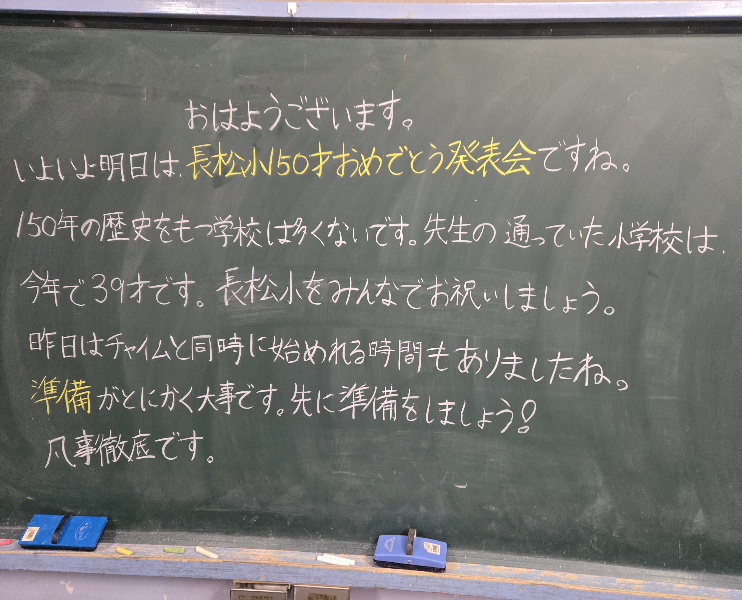 おはようございます。
いよいよ明日は、長松小150才おめでとう発表会ですね。
150年の歴史をもつ学校は多くないです。先生の通っていた小学校は、
今年で39才です。長松小をみんなでお祝いしましょう。
昨日はチャイムと同時に始めれる時間もありましたね。
準備がとにかく大事です。先に準備をしましょう!
凡事徹底です。